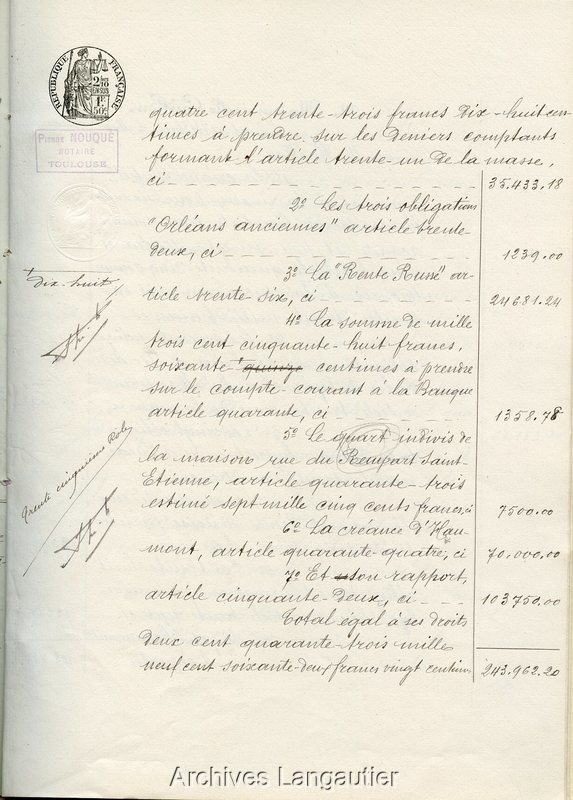 RÉPUBLIQUE FRANÇAISE
2/10 EN SUS
1F 50c
PIERRE NOUQUE
NOTAIRE
TOULOUSE
quatre cent trente-trois francs dix-huit cen-
times à prendre sur les deniers comptants
formant l'article trente-un de la masse,
ci 35.433.18
2º Les trois obligations
"Orléans anciennes" article trente
deux, ci 1239.00
dix-huit
3º La "Rente Russe" ar-
ticle trente-six, ci 24681.24
4º La somme de mille
trois cent cinquante-huit francs,
soixante quinze centimes à prendre
sur le compte-courant à la Banque
article quarante, ci 1358.78
5º Le quart indivis de
la maison rue du Rempart Saint-
Etienne, article quarante-trois
estimé sept mille cinq cents francs, ci 7500.00
Trente cinquième Rôle
6º La créance d'Hau-
mont, article quarante-quatre, ci 70,000.00
7º Et son rapport,
article cinquante-deux, ci 103750.00
Total égal à ses droits
deux cent quarante-trois mille
neuf cent soixante-deux francs vingt centimes 243.962.20
Archives Langautier